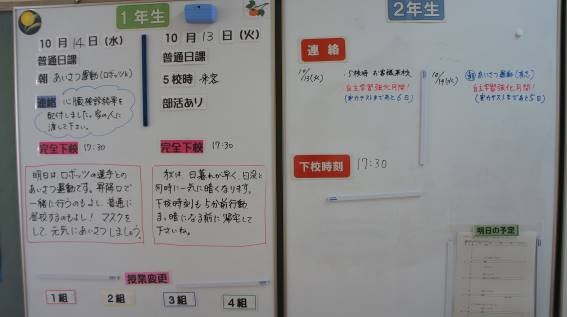 1年生
10月14日(水)
普通日課
朝 あいさつ運動(ロボッツ)
連絡 心臓検診結果を
配付しました。家の人に
渡して下さい。
完全下校 17:30
明日は、ロボッツの選手との
あいさつ運動です。昇降口で
一緒に行うのもよし、普通に
登校するのもよし! マスクを
して、元気にあいさつしましょう。
10月13日(火)
普通日課
5校時 来客
部活あり
完全下校 17:30
秋は、日暮れが早く、日没と
同時に一気に暗くなります。
下校時刻も5分前行動
で、暗くなる前に帰宅して
下さいね。
授業変更
1組 2組 3組 4組
2年生
連絡
10/13(火)
・5校時 お客様来校
自主学習強化月間!
(実力テストまであと6日)
10/14(水)
朝 あいさつ運動
自主学習強化月間!
(実力テストまであと5日)
下校時刻 17:30
明日の予定